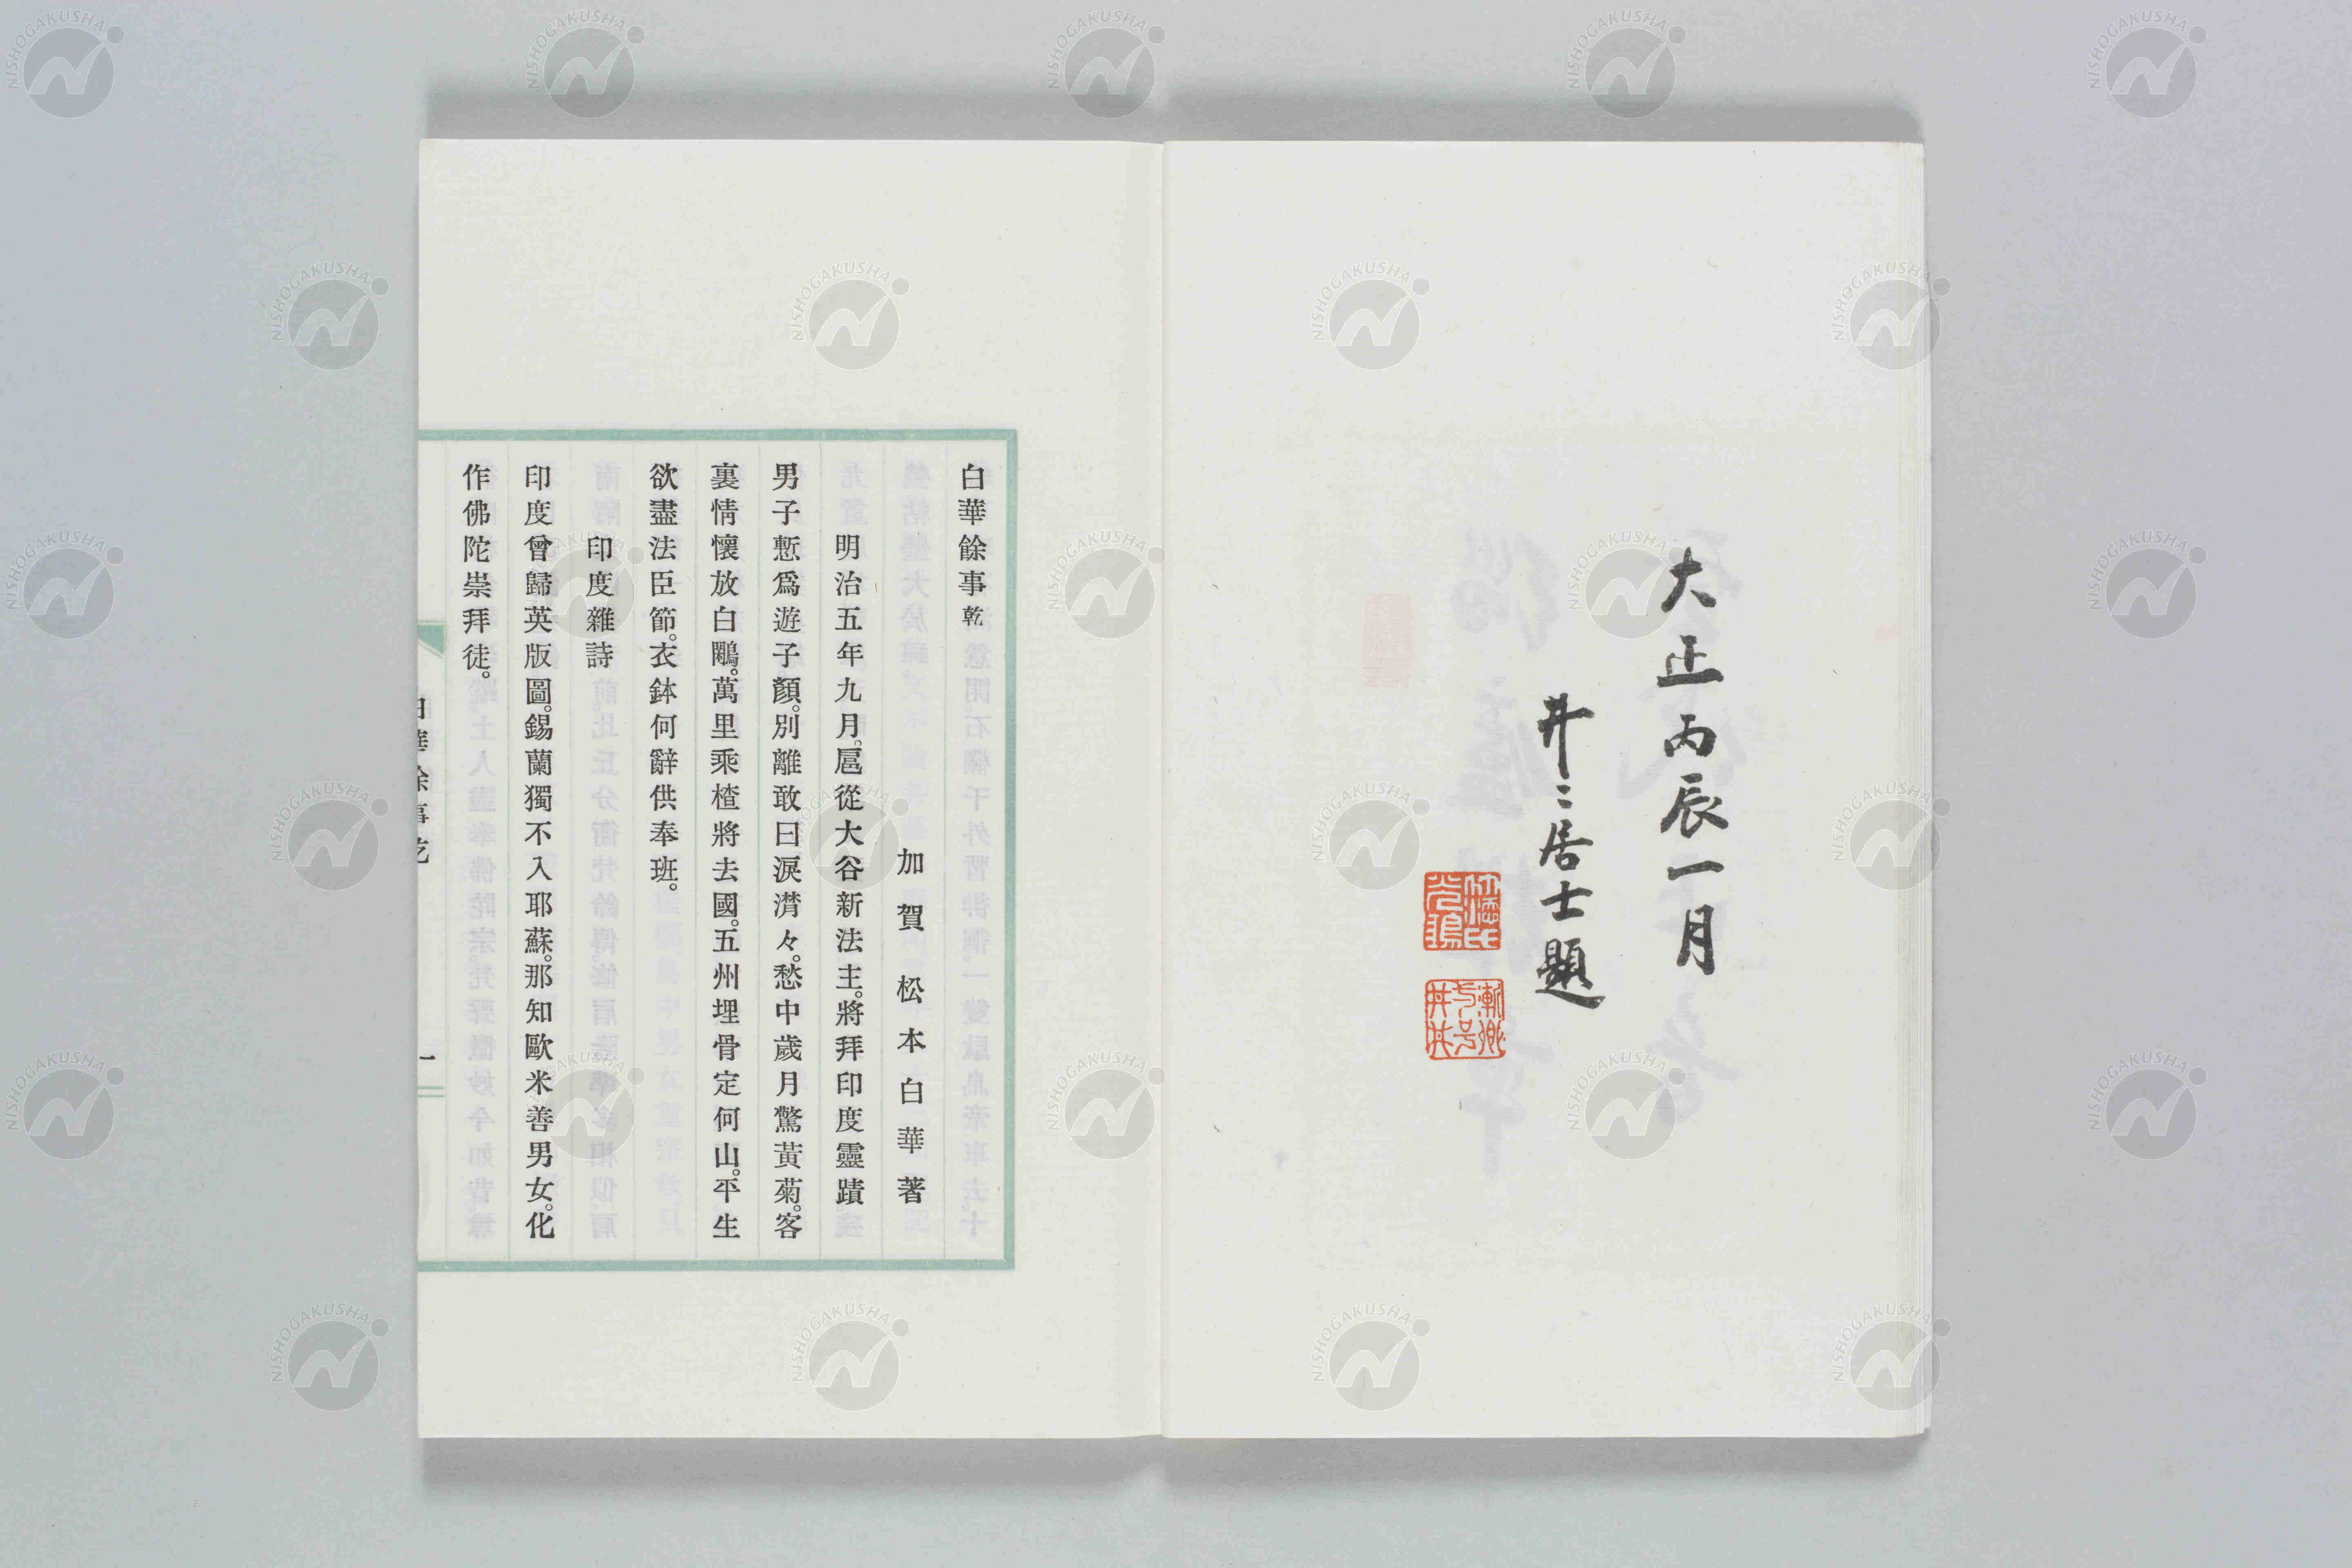 大正丙辰一月
井〻居士題
白華餘事乾
加賀 松本白華著
明治五年九月。扈從大谷新法主。將拜印度靈蹟
男子慙爲遊子顏。別離敢曰淚潸々。愁中歲月驚黃菊。客
裏情懷放白鷴。萬里乘楂將去國。五州埋骨定何山。平生
欲盡法臣節。衣鉢何辭供奉班。
印度雜詩
印度曾歸英版圖。錫蘭獨不入耶蘇。那知歐米善男女。化
作佛陀崇拜徒。
白華餘事乾
一
NISHOGAKUSHA